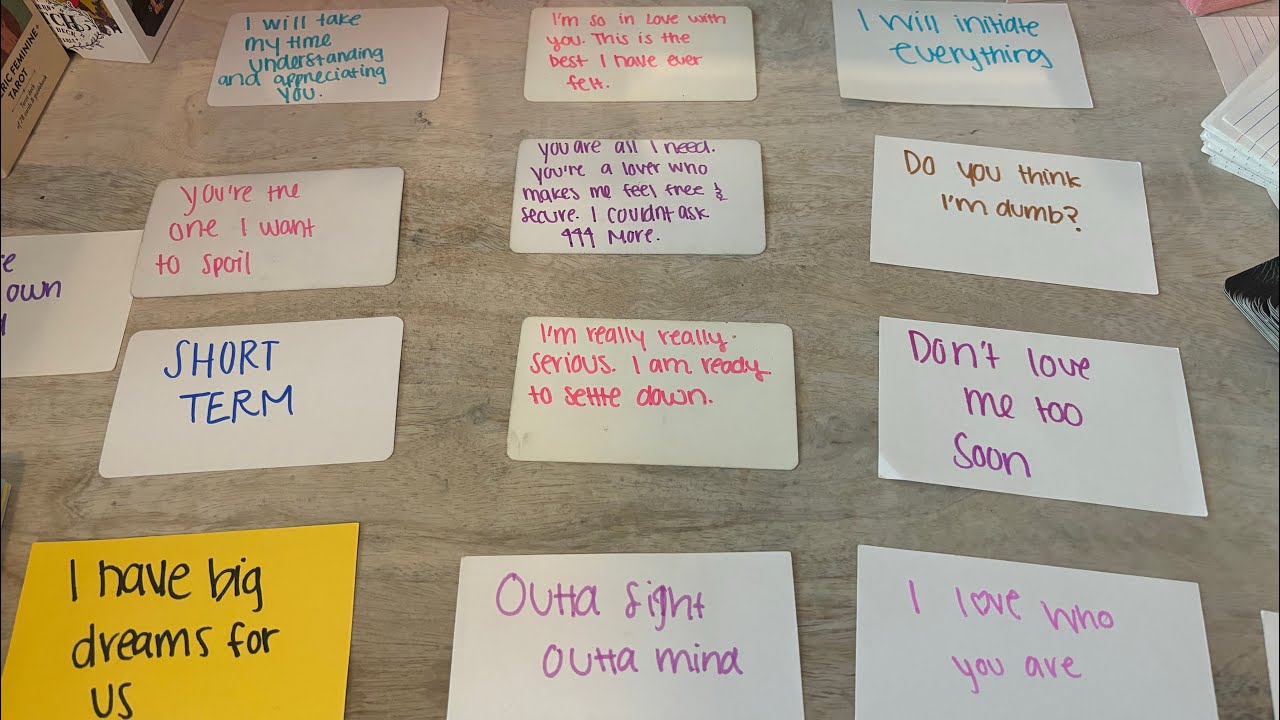 ERIC FEMININE
TAROT
I will take
my time
understanding
and appreciating
you.
I'm so in Love with
you. This is the
best I have ever
felt.
I will initiate
everything
you're the
one I want
to spoil
you are all I need.
you're a lover who
makes me feel free &
secure. I couldnt ask
444 more.
Do you think
I'm dumb?
own
SHORT
TERM
I'm really really
serious. I am ready
to settle down.
Don't love
me too
soon
I have big
dreams for
us
Outta sight
outta mind
I love who
you are